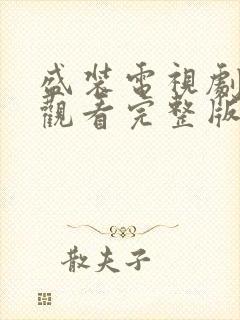 盛裝電視劇
觀看完整版
散夫子